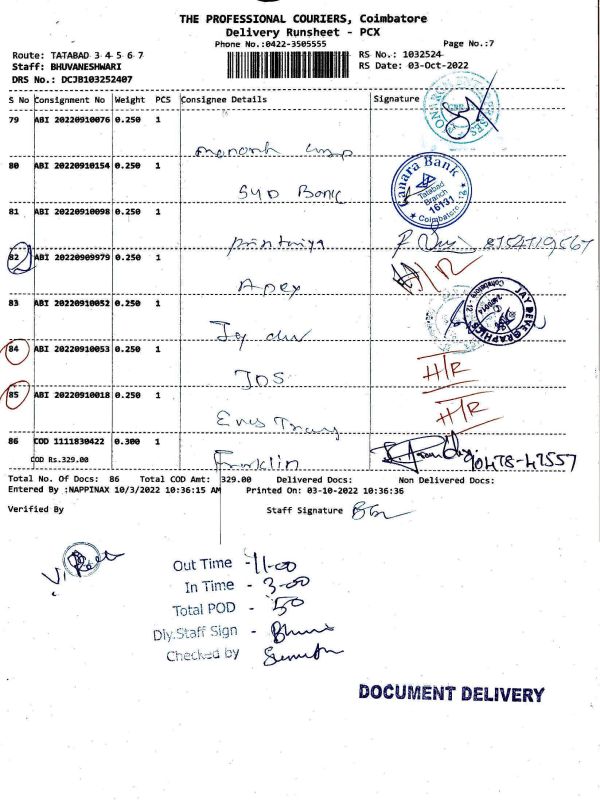 THE PROFESSIONAL COURIERS, Coimbatore
Delivery Runsheet - PCX
Phone No.:0422-3505555
Page No.:7
Route: TATABAD 3 4 5 6 7
RS No.: 1032524
Staff: BHUVANESHWARI
RS Date: 03-Oct-2022
DRS No.: DCJB103252407
S No Consignment No Weight PCS Consignee Details Signature
79 ABI 20220910076 0.250 1
80 ABI 20220910154 0.250 1
Canara Bank
Tatabad
Branch
16131
Coimbatore-12
SYD Bank
81 ABI 20220910098 0.250 1
8754719567
82 ABI 20220909979 0.250 1
Apex
83 ABI 20220910052 0.250 1
JAY DEVE GRAPHICS
Coimbatore - 12
84 ABI 20220910053 0.250 1
H/R
JOS
85 ABI 20220910018 0.250 1
H/R
86 COD 1111830422 0.300 1
COD Rs.329.00
Franklin
90478-47557
Total No. Of Docs: 86 Total COD Amt: 329.00 Delivered Docs: Non Delivered Docs:
Entered By :NAPPINAX 10/3/2022 10:36:15 AM Printed On: 03-10-2022 10:36:36
Verified By Staff Signature
Out Time - 11-00
In Time - 3-00
Total POD - 50
Dly.Staff Sign -
Checked by
DOCUMENT DELIVERY